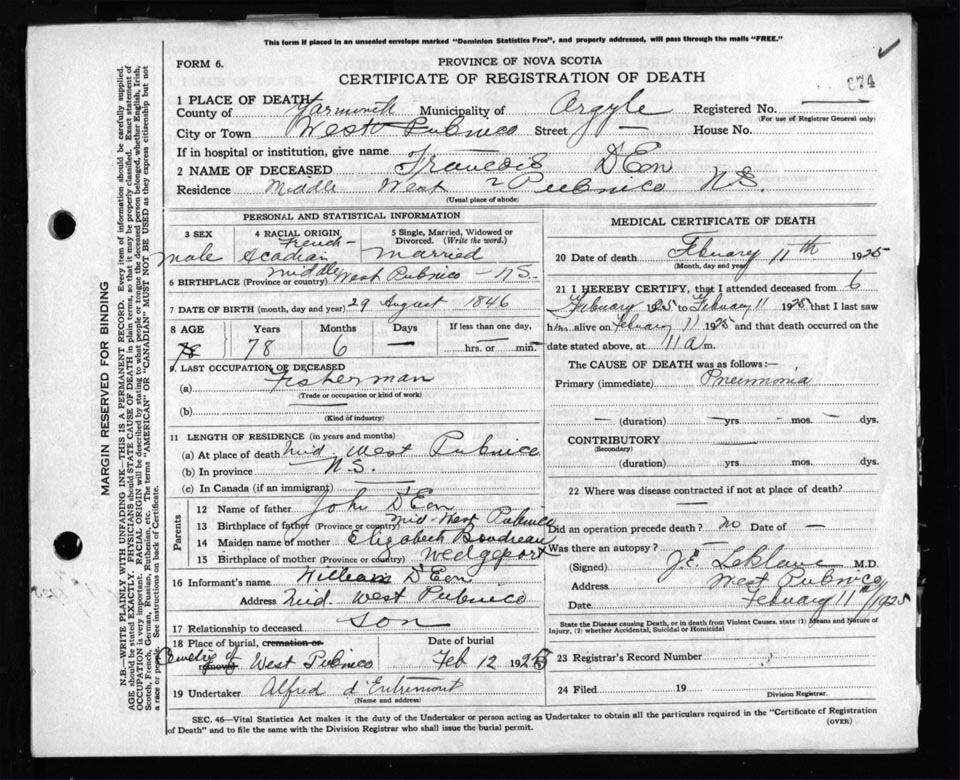 This form if placed in an unsealed envelope marked "Dominion Statistics Free", and properly addressed, will pass through the mails "FREE."
FORM 6.
PROVINCE OF NOVA SCOTIA
CERTIFICATE OF REGISTRATION OF DEATH
674
1 PLACE OF DEATH
County of Yarmouth Municipality of Argyle Registered No.
(For use of Registrar General only)
City or Town West Pubnico Street — House No.
If in hospital or institution, give name
2 NAME OF DECEASED Francois D'Eon
Residence Middle West Pubnico N.S.
(Usual place of abode)
PERSONAL AND STATISTICAL INFORMATION
3 SEX 4 RACIAL ORIGIN 5 Single, Married, Widowed or Divorced. (Write the word.)
male French-Acadian Married
6 BIRTHPLACE (Province or country) middle West Pubnico - N.S.
7 DATE OF BIRTH (month, day and year) 29 August 1846
8 AGE Years Months Days If less than one day,
78 78 6 — hrs. or min.
9. LAST OCCUPATION OF DECEASED
(a) Fisherman
(Trade or occupation or kind of work)
(b)
(Kind of industry)
11 LENGTH OF RESIDENCE (in years and months)
(a) At place of death Mid. West Pubnico
(b) In province N.S.
(c) In Canada (if an immigrant)
Parents
12 Name of father John D'Eon
13 Birthplace of father (Province or country) Mid-West Pubnico
14 Maiden name of mother Elizabeth Boudreau
15 Birthplace of mother (Province or country) Wedgeport
16 Informant's name William D'Eon
Address Mid. West Pubnico
17 Relationship to deceased son
18 Place of burial, cremation or removal Date of burial
Cemetery of West Pubnico Feb 12 1925
19 Undertaker Alfred d'Entremont
(Name and address)
MEDICAL CERTIFICATE OF DEATH
20 Date of death Febuary 11th 1925
(Month, day and year)
21 I HEREBY CERTIFY, that I attended deceased from 6
Febuary 1925 to Febuary 11 1925 that I last saw
h alive on Febuary 11 1925 and that death occurred on the
date stated above, at 11 a m.
The CAUSE OF DEATH was as follows:—
Primary (immediate) Pneumonia
— (duration) — yrs — mos. — dys.
CONTRIBUTORY —
(Secondary)
(duration) yrs mos. dys.
22 Where was disease contracted if not at place of death? —
Did an operation precede death? no Date of —
Was there an autopsy? —
(Signed) J.E. Leblanc M.D.
Address West Pubnico
Date Febuary 11th/1925
State the Disease causing Death, or in death from Violent Causes, state (1) Means and Nature of
Injury, (2) whether Accidental, Suicidal or Homicidal
23 Registrar's Record Number
24 Filed 19
Division Registrar.
SEC. 46—Vital Statistics Act makes it the duty of the Undertaker or person acting as Undertaker to obtain all the particulars required in the "Certificate of Registration
of Death" and to file the same with the Division Registrar who shall issue the burial permit.
(OVER)
MARGIN RESERVED FOR BINDING
N.B.—WRITE PLAINLY WITH UNFADING INK—THIS IS A PERMANENT RECORD. Every item of information should be carefully supplied.
AGE should be stated EXACTLY. PHYSICIANS should STATE CAUSE OF DEATH in plain terms, so that it may be properly classified. Exact statement of
OCCUPATION is very important. RACIAL ORIGIN will be described by stating to what people or tongue the deceased person belonged, whether English, Irish,
Scotch, French, German, Russian, Ruthenian, etc. The terms "AMERICAN" OR "CANADIAN" MUST NOT BE USED as they express citizenship but not
a race or people. See instructions on back of Certificate.